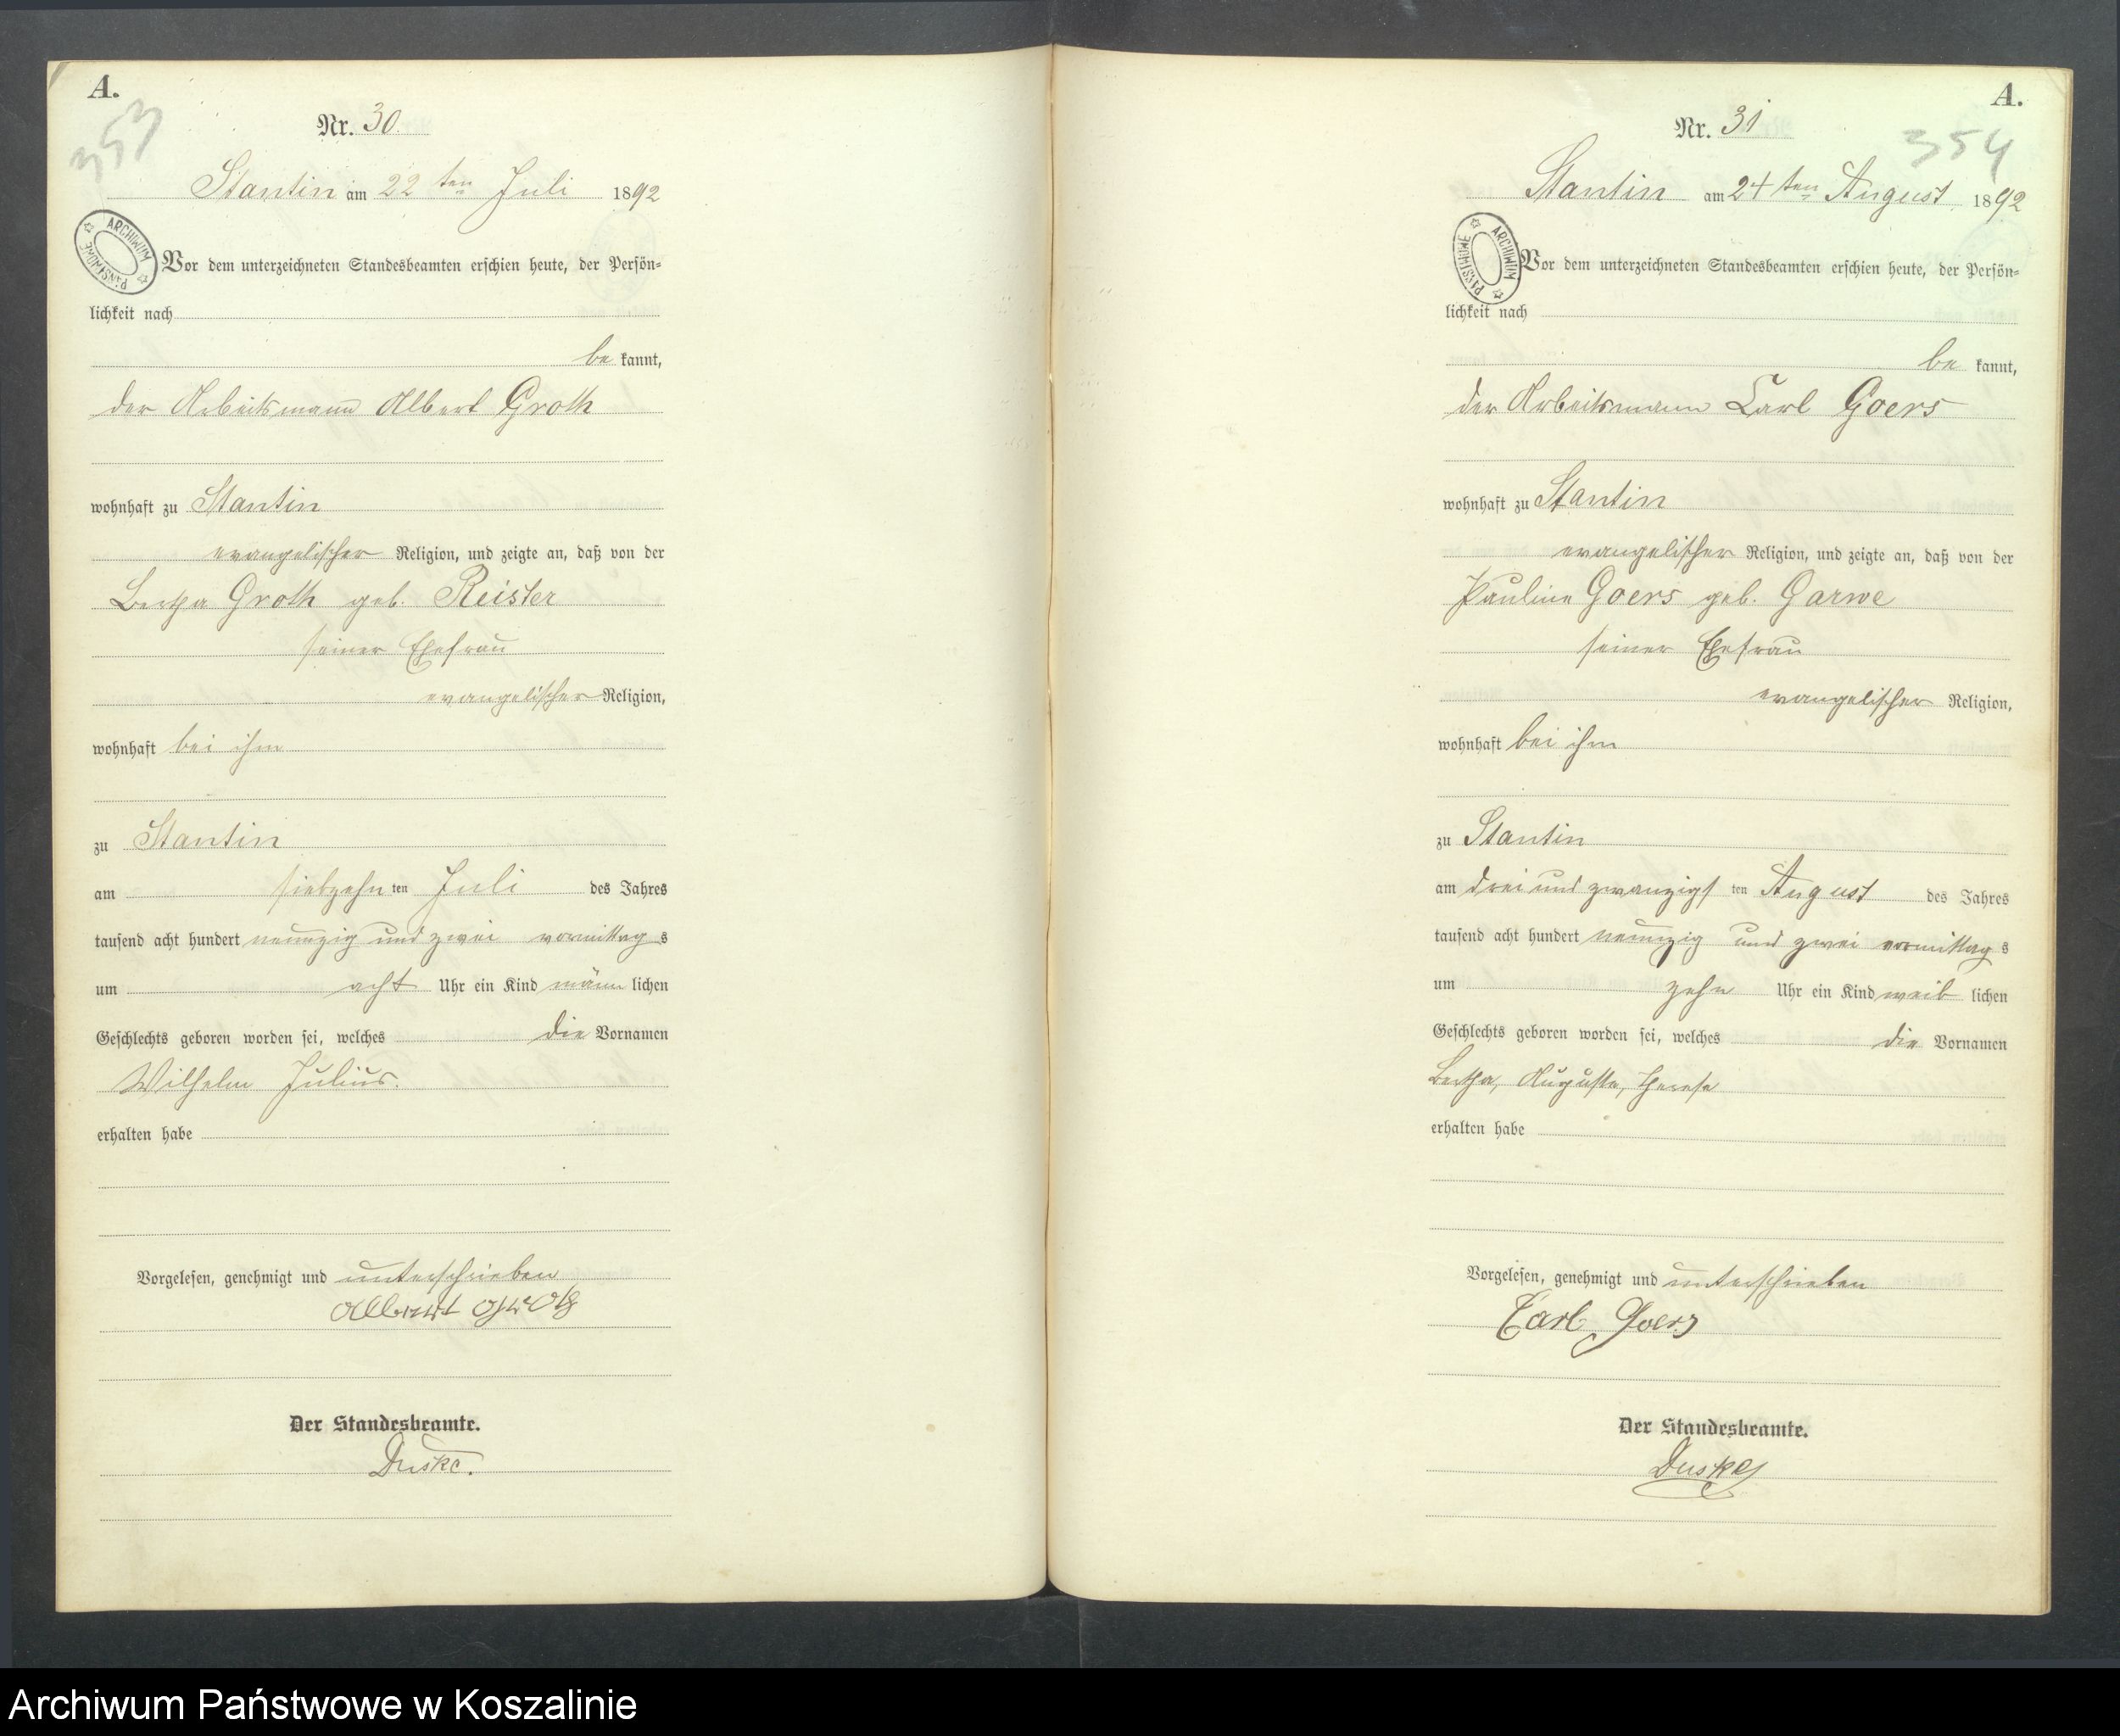 A.
353
Nr. 30.
Stantin am 22ten Juli 1892
ARCHIWUM PAŃSTWOWE
Vor dem unterzeichneten Standesbeamten erschien heute, der Persön-
lichkeit nach
be kannt,
der Arbeitsmann Albert Groth
wohnhaft zu Stantin
evangelischer Religion, und zeigte an, daß von der
Bertha Groth geb. Reister
seiner Ehefrau
evangelischer Religion,
wohnhaft bei ihm
zu Stantin
am siebzehn ten Juli des Jahres
tausend acht hundert neunzig und zwei vormittag s
um acht Uhr ein Kind männ lichen
Geschlechts geboren worden sei, welches die Vornamen
Wilhelm Julius.
erhalten habe
Vorgelesen, genehmigt und unterschrieben
Albert Groth
Der Standesbeamte.
Duske.
A.
354
Nr. 31
Stantin am 24ten August 1892
ARCHIWUM PAŃSTWOWE
Vor dem unterzeichneten Standesbeamten erschien heute, der Persön-
lichkeit nach
be kannt,
der Arbeitsmann Carl Goers
wohnhaft zu Stantin
evangelischer Religion, und zeigte an, daß von der
Pauline Goers geb. Garwe
seiner Ehefrau
evangelischer Religion,
wohnhaft bei ihm
zu Stantin
am drei und zwanzigs ten August des Jahres
tausend acht hundert neunzig und zwei vormittag s
um zehn Uhr ein Kind weib lichen
Geschlechts geboren worden sei, welches die Vornamen
Bertha, Auguste, Therese
erhalten habe
Vorgelesen, genehmigt und unterschrieben
Carl Goers
Der Standesbeamte.
Duske
Archiwum Państwowe w Koszalinie